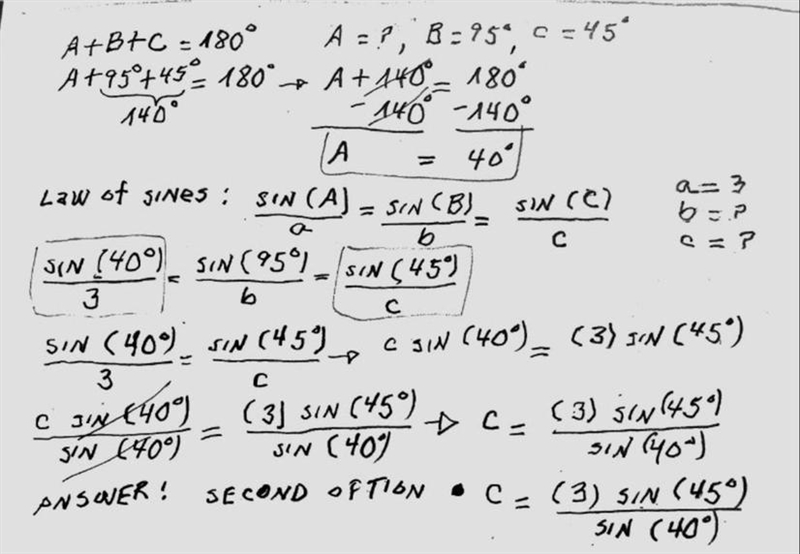 A+B+C = 180° A = ?, B = 95°, C = 45°
A+95°+45° = 180° → A + 140° = 180°
140° -140° -140°
A = 40°
Law of sines: sin(A)/a = sin(B)/b = sin(C)/c
a = 3
b = ?
c = ?
sin(40°)/3 = sin(95°)/b = sin(45°)/c
sin(40°)/3 = sin(45°)/c → c sin(40°) = (3) sin(45°)
c sin(40°)/sin(40°) = (3) sin(45°)/sin(40°) → c = (3) sin(45°)/sin(40°)
ANSWER! SECOND OPTION • C = (3) sin(45°)/sin(40°)